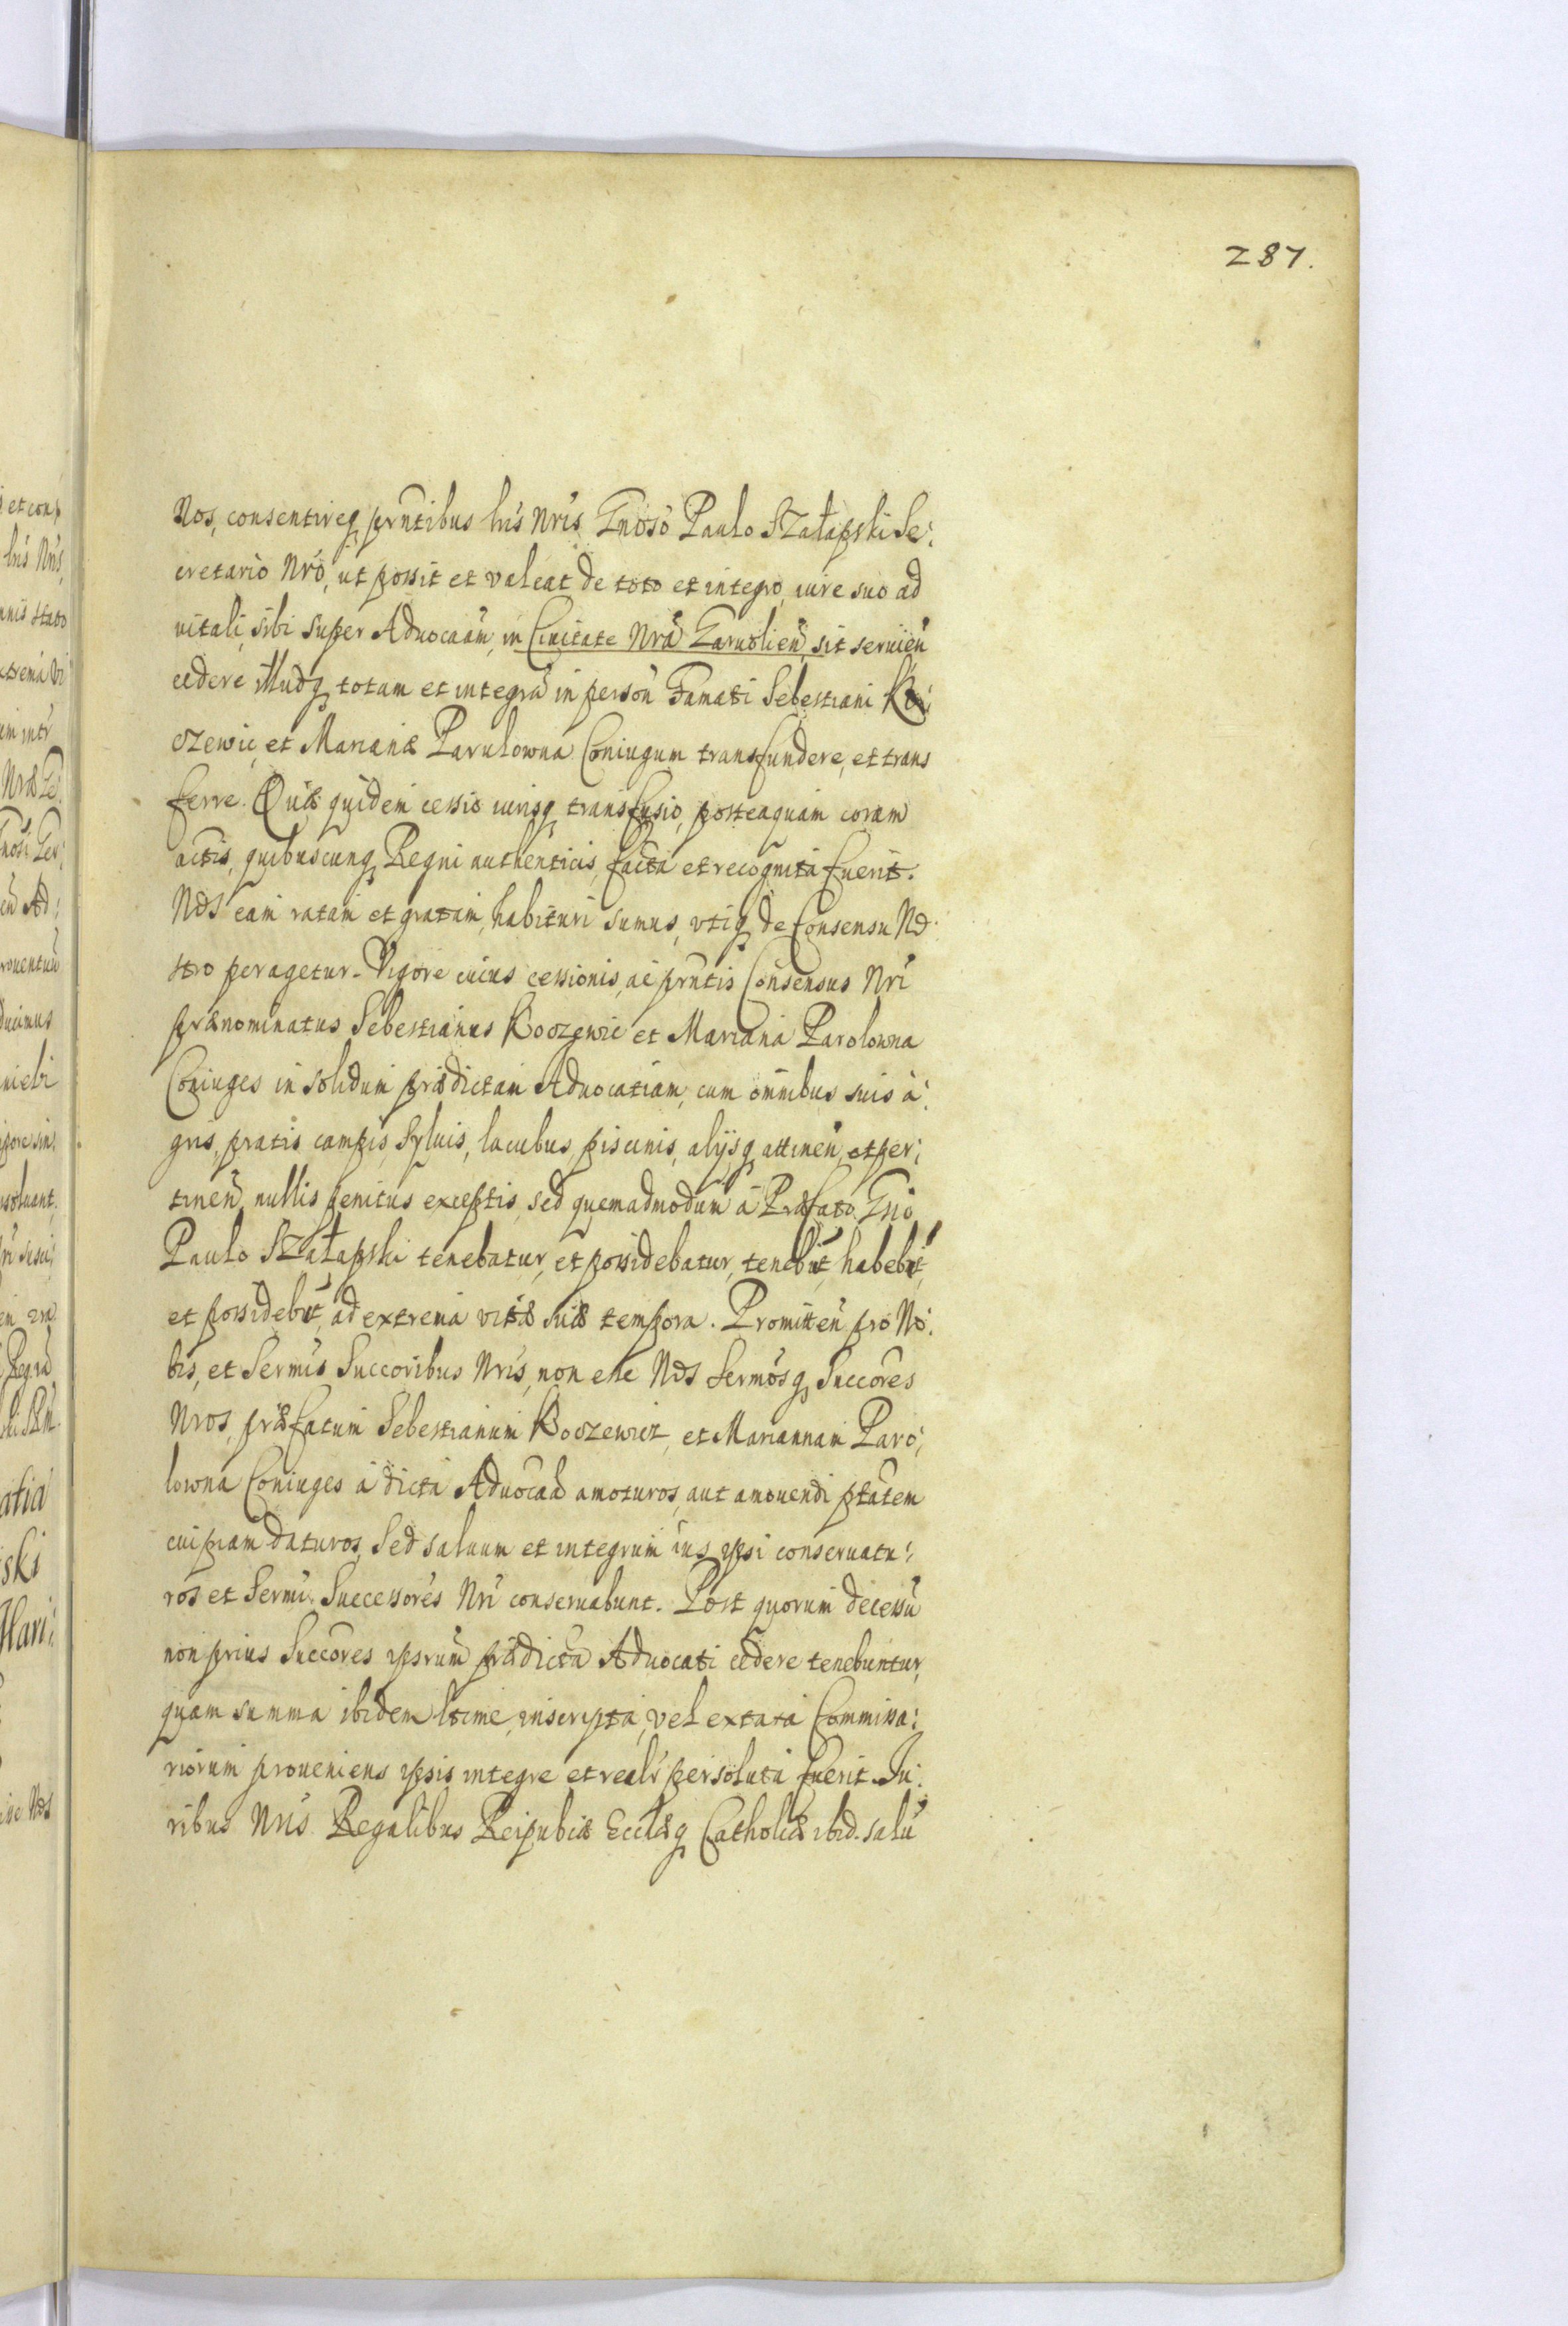 287.
Nos, consentireq̨ prntibus lris Nris Gnoso Paulo Szałapski Se:
cretario Nro, ut possit et valeat de toto et integro, iure suo ad
vitali, sibi super Aduocaam, in Ciuitate Nra Garuolien, sit seruien
cedere illudq̨ totam et integra in person Famati Sebestiani Ko:
czewic, et Marianæ Parulowna Coniugum transfundere, et trans
ferre. Quæ quidem cessio iurisq̨ transfusio, posteaquam coram
actis, quibuscunq̨ Regni authenticis, facta et recognita fuerit.
Nos eam ratam et gratam, habituri sumus, utiq̨ de Consensu No
stro peragetur. Vigore cuius cessionis, ac prntis Consensus Nri
prænominatus Sebestianus Koczewic et Mariana Parolowna
Coniuges in solidum prædictam Aduocatiam, cum omnibus suis a:
gris, pratis campis, syluis, lacubus, piscinis, alijsq̨ attinen, et per:
tinen, nullis penitus exceptis, sed quemadmodum a Præfato Gno
Paulo Szałapski tenebatur, et possidebatur, tenebut, habebut,
et possidebut, ad extrema vitæ suæ tempora. Promitten pro No:
bis, et Sermis Succoribus Nris, non esse Nos Sermosq̨ Succores
Nros, præfatum Sebestianum Koczewicz, et Mariannam Paro:
lowna Coniuges a dicta Aduocaa amoturos, aut amouendi ptatem
cuipiam daturos, Sed saluum et integrum ius ipsi conseruatu:
ros et Sermi Successores Nri conseruabunt. Post quorum decessu
non prius Succores ipsrum prædicta Aduocati cedere tenebuntur,
quam summa ibidem ltime inscripta, vel extaxa Commissa:
riorum proueniens ipsis integre et realr persoluta fuerit. Iu:
ribus Nris Regalibus Reipublcæ Ecclæq̨ Catholcæ ibid. salu